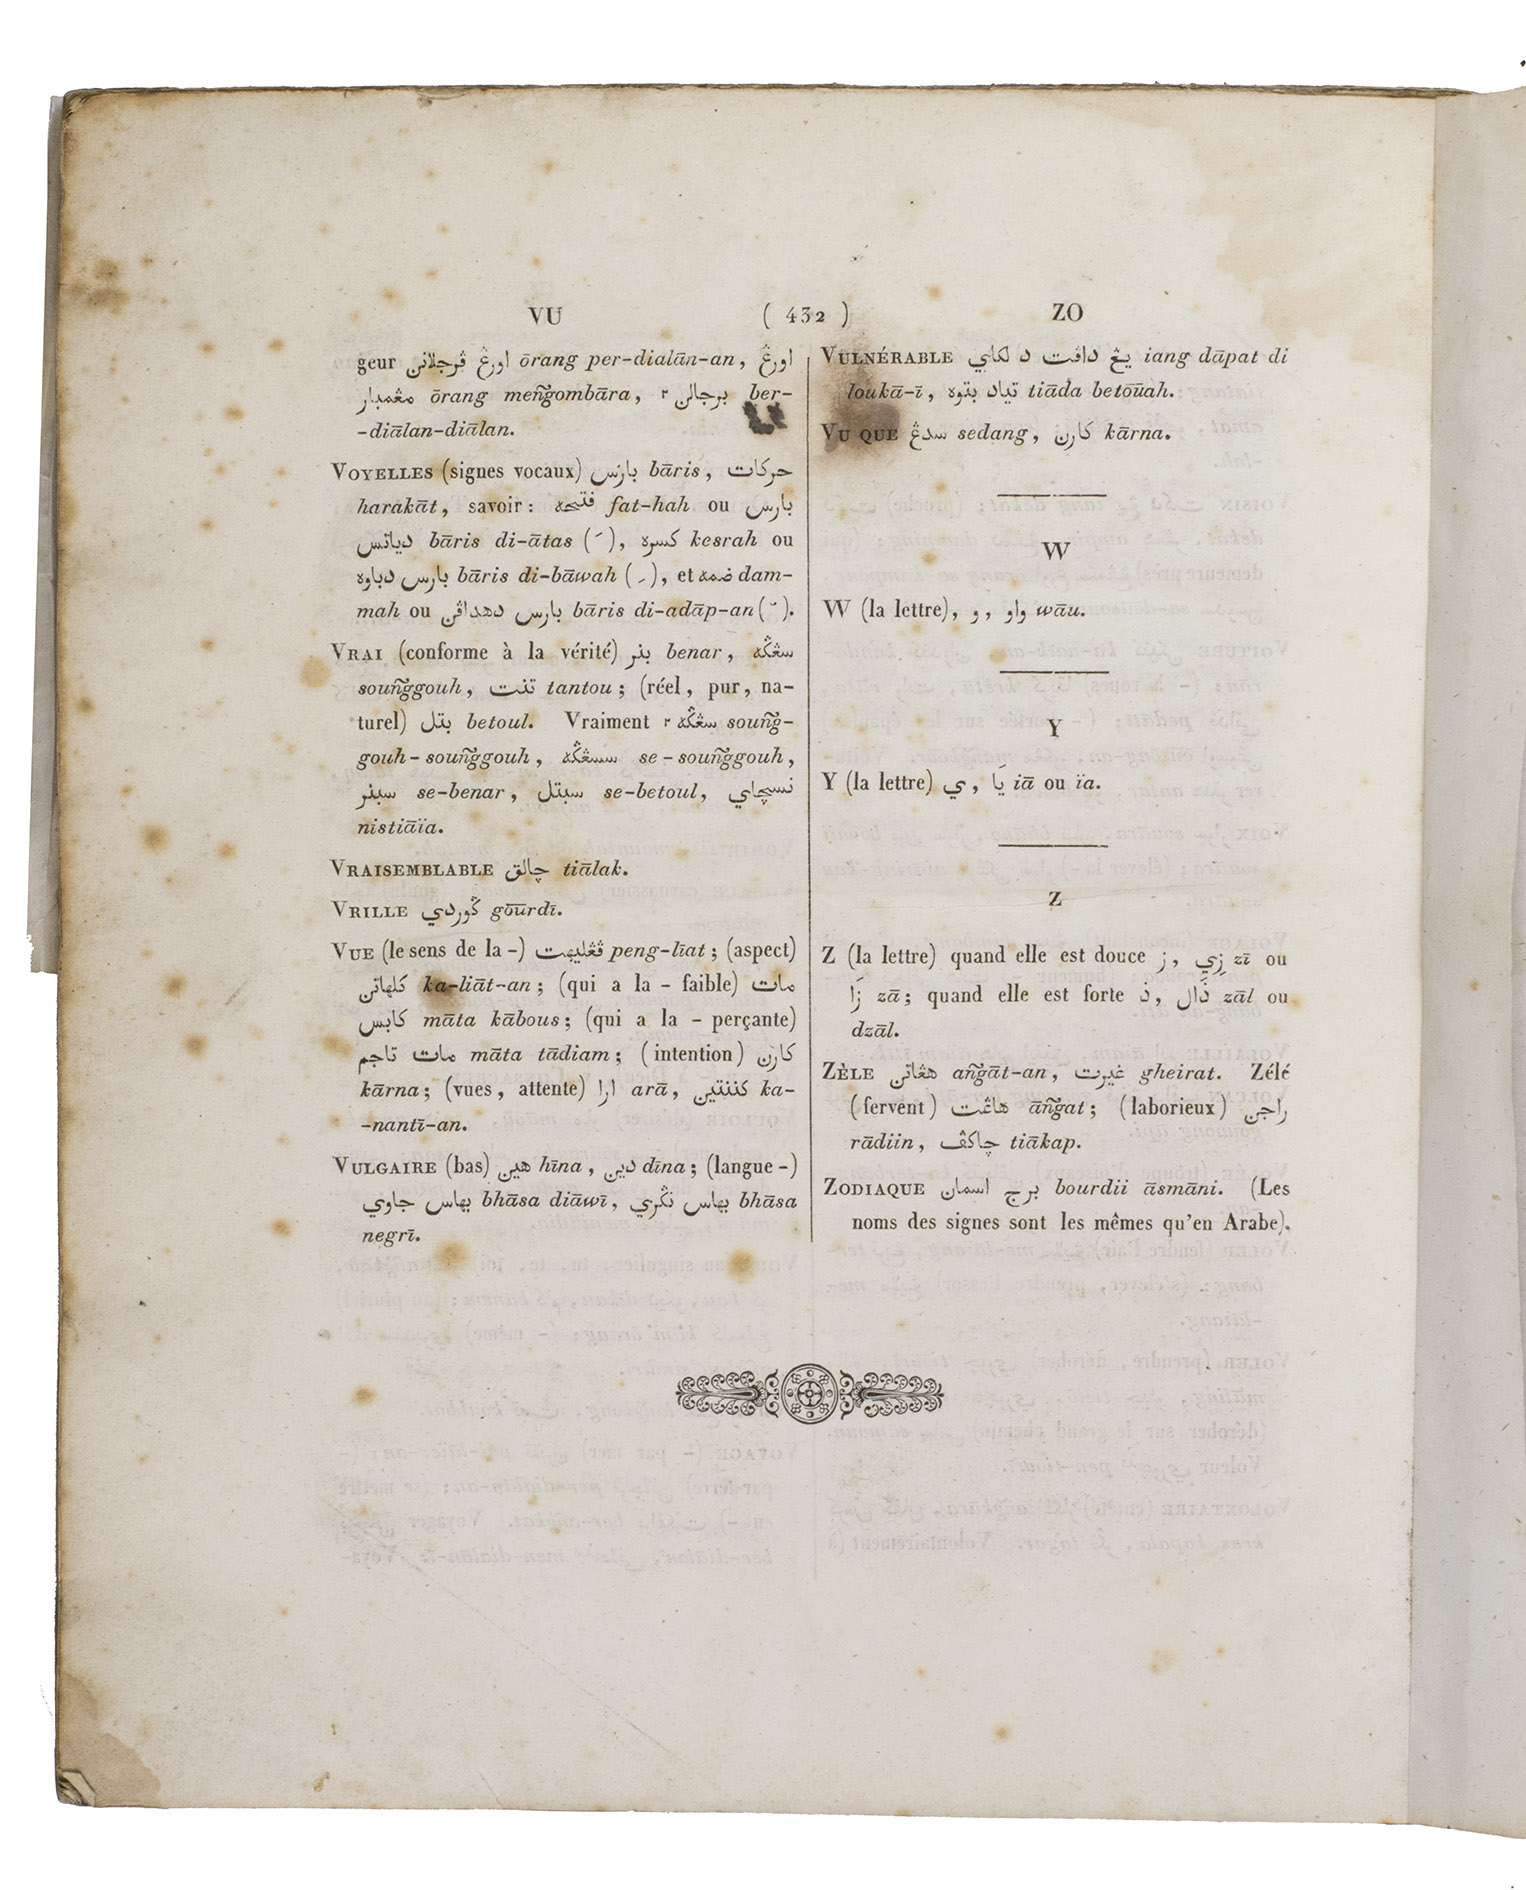 VU
( 432 )
ZO
geur اورڠ ڤرجلانن ōrang per-dialān-an, اورڠ
مڠمبار ōrang meñgombāra, برجالن ٢ ber-
-diālan-diālan.
VOYELLES (signes vocaux) بارس bāris, حركات
harakāt, savoir: فتحه fat-hah ou بارس
دياتس bāris di-ātas (َ), كسره kesrah ou
بارس دباوه bāris di-bāwah (ِ), et ضمه dam-
mah ou بارس دهداڤن bāris di-adāp-an (ُ).
VRAI (conforme à la vérité) بنر benar, سڠݢه
souñggouh, تنت tantou; (réel, pur, na-
turel) بتل betoul. Vraiment سڠݢه ٢ souñg-
gouh-souñggouh, سسڠݢه se-souñggouh,
سبنر se-benar, سبتل se-betoul, نسچاي
nistiāïa.
VRAISEMBLABLE چالق tiālak.
VRILLE ݢوردي gōūrdī.
VUE (le sens de la -) ڤڠليهت peng-līat; (aspect)
كلهاتن ka-liāt-an; (qui a la - faible) مات
كابس māta kābous; (qui a la - perçante)
مات تاجم māta tādiam; (intention) كارن
kārna; (vues, attente) ارا arā, كننتين ka-
-nantī-an.
VULGAIRE (bas) هين hīna, دين dīna; (langue -)
بهاس جاوي bhāsa diāwī, بهاس نݢري bhāsa
negrī.
VULNÉRABLE يڠ داڤت د لكاي iang dāpat di
loukā-ī, تياد بتوه tiāda betōūah.
VU QUE سدڠ sedang, كارن kārna.
W
W (la lettre), و, واو wāu.
Y
Y (la lettre) ي, يَا iā ou ïa.
Z
Z (la lettre) quand elle est douce ز, زِي zī ou
زَا zā; quand elle est forte ذ, ذَال zāl ou
dzāl.
ZÈLE هڠاتن añgāt-an, غيرت gheirat. Zélé
(fervent) هاڠت āñgat; (laborieux) راجن
rādiin, چاكڤ tiākap.
ZODIAQUE برج اسمان bourdii āsmāni. (Les
noms des signes sont les mêmes qu'en Arabe).